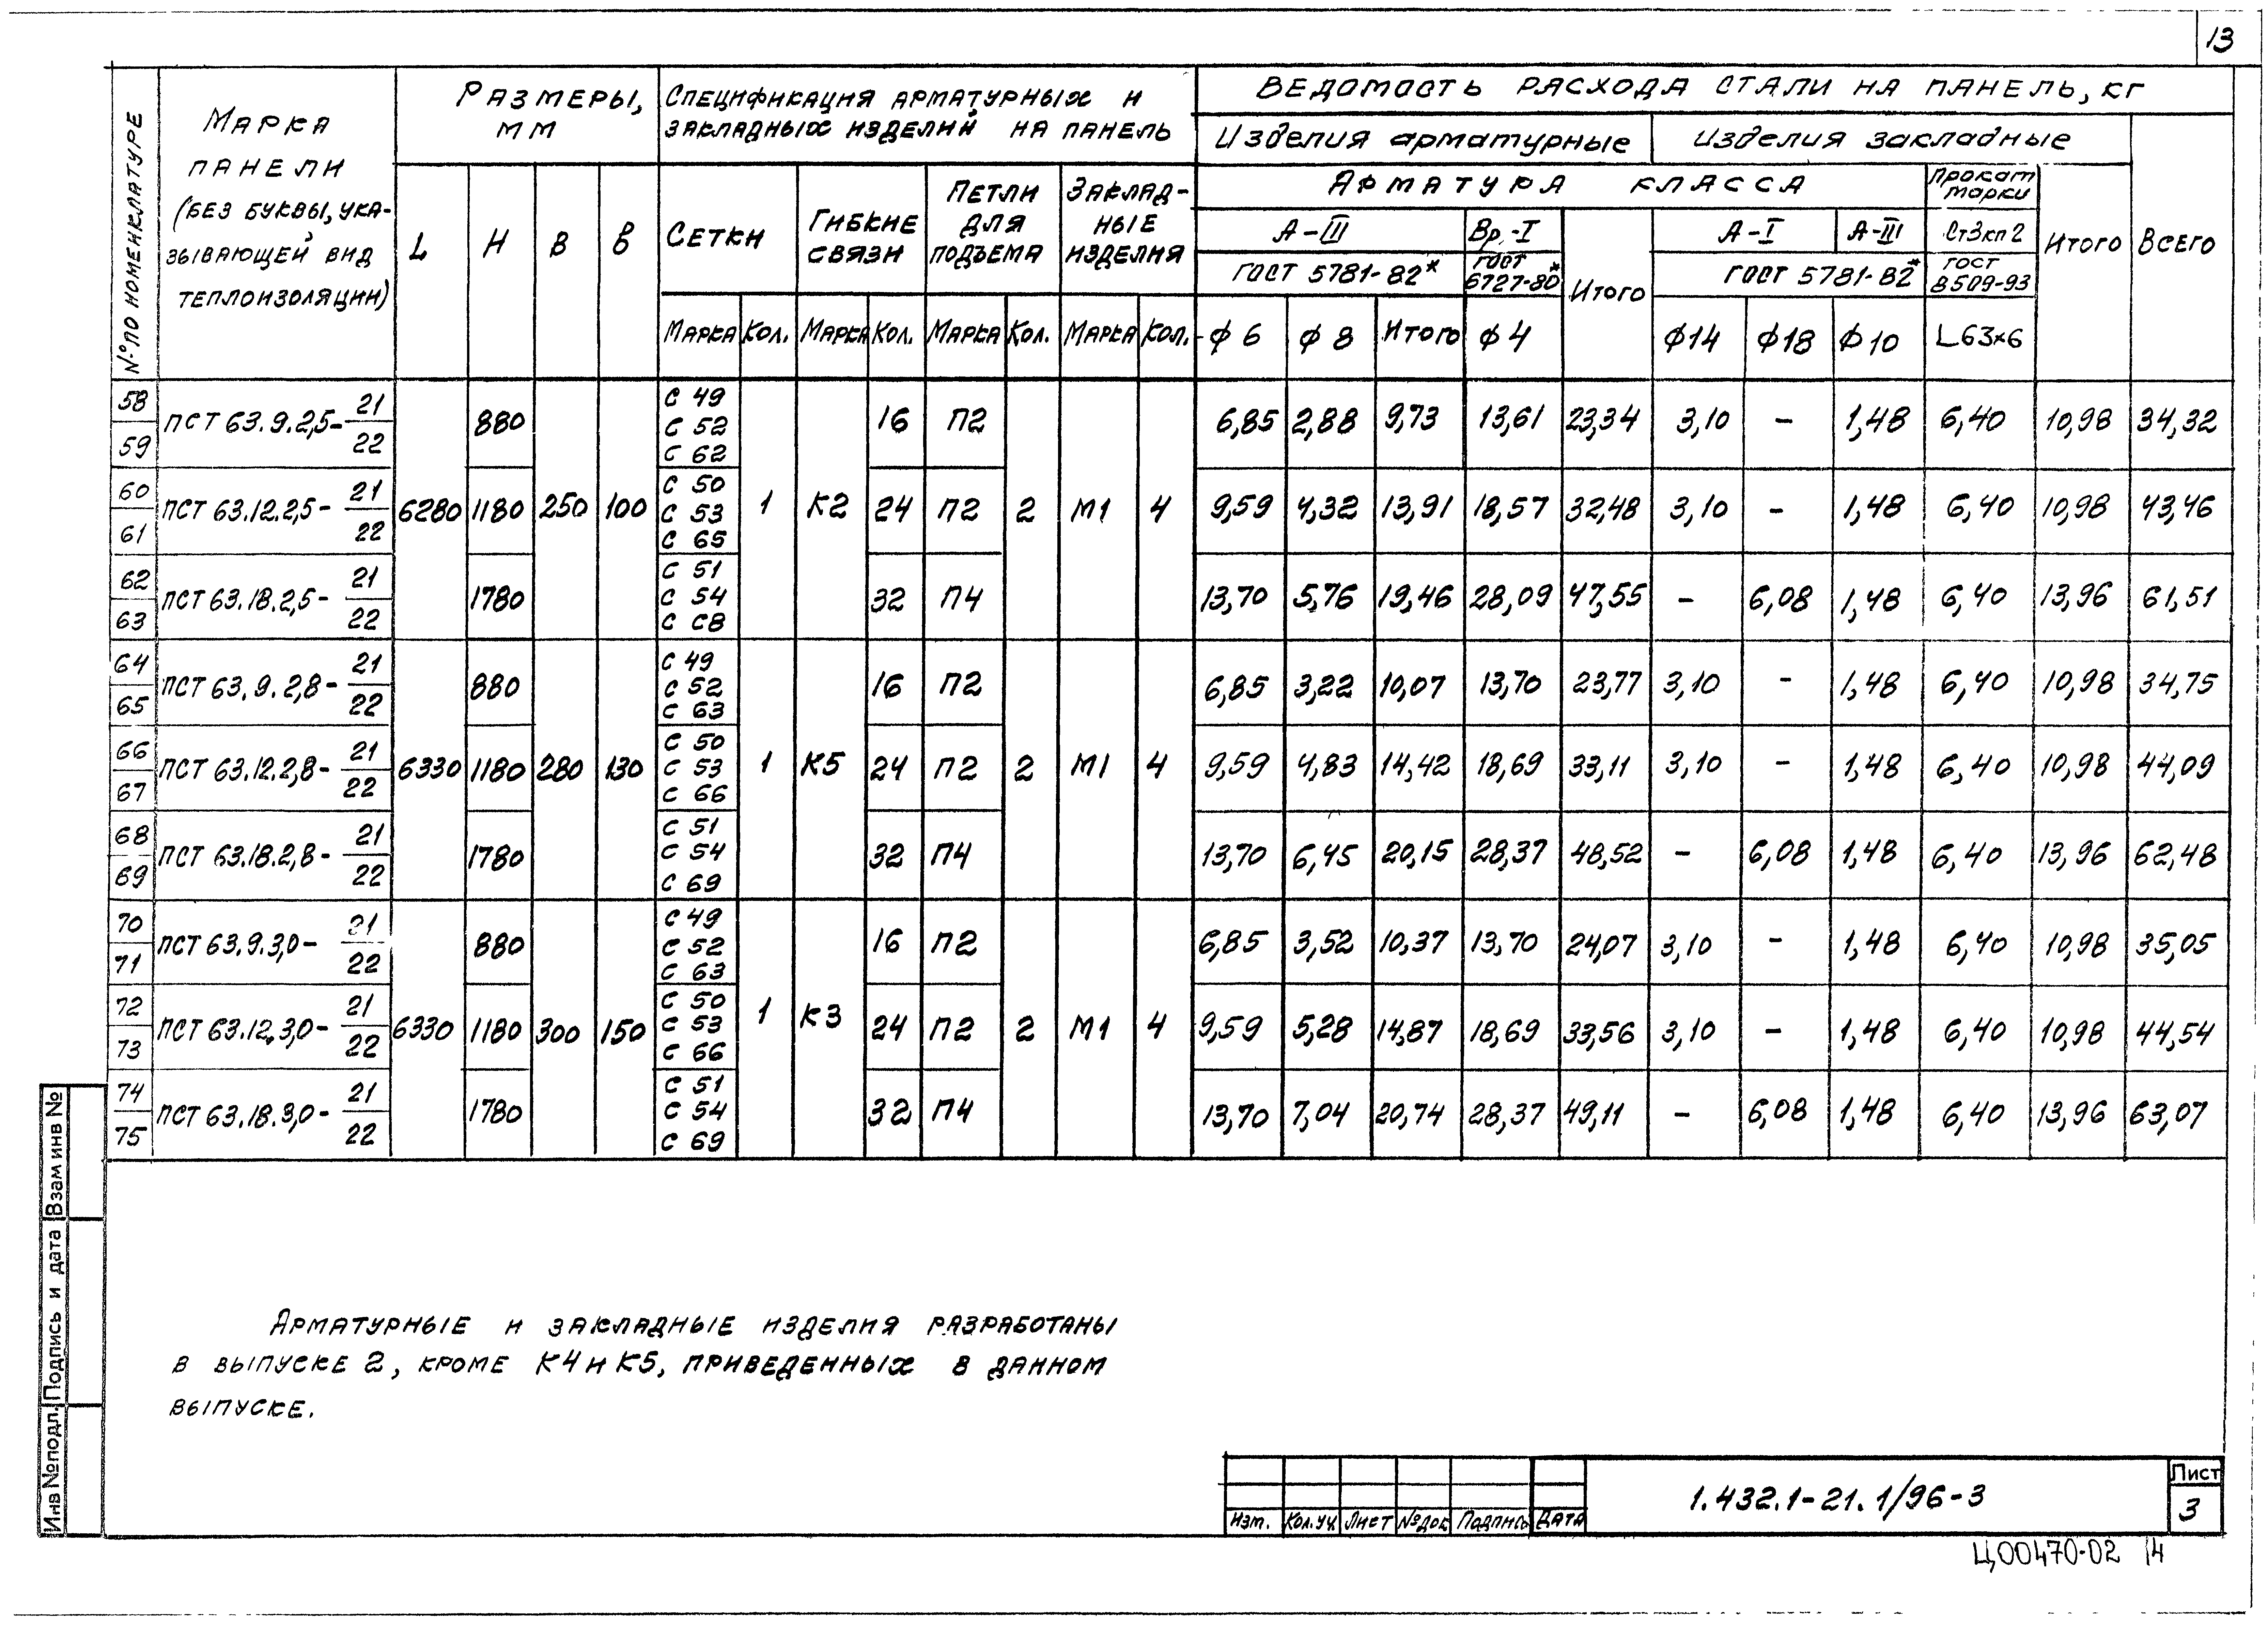 13
№ ПО НОМЕНКЛАТУРЕ
МАРКА
ПАНЕЛИ
(БЕЗ БУКВЫ, УКА-
ЗЫВАЮЩЕЙ ВИД
ТЕПЛОИЗОЛЯЦИИ)
РАЗМЕРЫ,
ММ
СПЕЦИФИКАЦИЯ АРМАТУРНЫХ И
ЗАКЛАДНЫХ ИЗДЕЛИЙ НА ПАНЕЛЬ
ВЕДОМОСТЬ РАСХОДА СТАЛИ НА ПАНЕЛЬ, КГ
Изделия арматурные Изделия закладные
L H B в
СЕТКИ
ГИБКИЕ
СВЯЗИ
ПЕТЛИ
ДЛЯ
ПОДЪЕМА
ЗАКЛАД-
НЫЕ
ИЗДЕЛИЯ
АРМАТУРА КЛАССА
Прокат
марки
А-III Вр.-I А-I А-III Ст3кп2
ГОСТ 5781-82* ГОСТ 6727-80* ГОСТ 5781-82* ГОСТ 8509-93
Итого Итого Всего
МАРКА КОЛ. МАРКА КОЛ. МАРКА КОЛ. МАРКА КОЛ. ф6 ф8 Итого ф4 ф14 ф18 ф10 L63×6
58 59 ПСТ 63.9.2,5- 21/22 880 С 49 С 52 С 62 16 П2 6,85 2,88 9,73 13,61 23,34 3,10 - 1,48 6,40 10,98 34,32
60 61 ПСТ 63.12.2,5- 21/22 6280 1180 250 100 С 50 С 53 С 65 1 К2 24 П2 2 М1 4 9,59 4,32 13,91 18,57 32,48 3,10 - 1,48 6,40 10,98 43,46
62 63 ПСТ 63.18.2,5- 21/22 1780 С 51 С 54 С С8 32 П4 13,70 5,76 19,46 28,09 47,55 - 6,08 1,48 6,40 13,96 61,51
64 65 ПСТ 63.9.2,8- 21/22 880 С 49 С 52 С 63 16 П2 6,85 3,22 10,07 13,70 23,77 3,10 - 1,48 6,40 10,98 34,75
66 67 ПСТ 63.12.2,8- 21/22 6330 1180 280 130 С 50 С 53 С 66 1 К5 24 П2 2 М1 4 9,59 4,83 14,42 18,69 33,11 3,10 - 1,48 6,40 10,98 44,09
68 69 ПСТ 63.18.2,8- 21/22 1780 С 51 С 54 С 69 32 П4 13,70 6,45 20,15 28,37 48,52 - 6,08 1,48 6,40 13,96 62,48
70 71 ПСТ 63.9.3,0- 21/22 880 С 49 С 52 С 63 16 П2 6,85 3,52 10,37 13,70 24,07 3,10 - 1,48 6,40 10,98 35,05
72 73 ПСТ 63.12.3,0- 21/22 6330 1180 300 150 С 50 С 53 С 66 1 К3 24 П2 2 М1 4 9,59 5,28 14,87 18,69 33,56 3,10 - 1,48 6,40 10,98 44,54
74 75 ПСТ 63.18.3,0- 21/22 1780 С 51 С 54 С 69 32 П4 13,70 7,04 20,74 28,37 49,11 - 6,08 1,48 6,40 13,96 63,07
АРМАТУРНЫЕ И ЗАКЛАДНЫЕ ИЗДЕЛИЯ РАЗРАБОТАНЫ
В ВЫПУСКЕ 2, КРОМЕ К4 И К5, ПРИВЕДЕННЫХ В ДАННОМ
ВЫПУСКЕ.
Взам инв №
Подпись и дата
Инв № подл.
Изм. Кол.уч Лист №док Подпись Дата
1.432.1-21.1/96-3
Лист
3
Ц00470-02 14